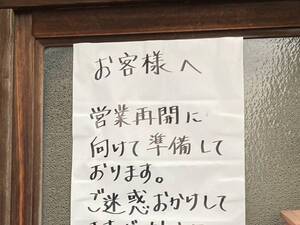 お客様へ
営業再開に
向けて準備して
おります。
ご迷惑おかけして